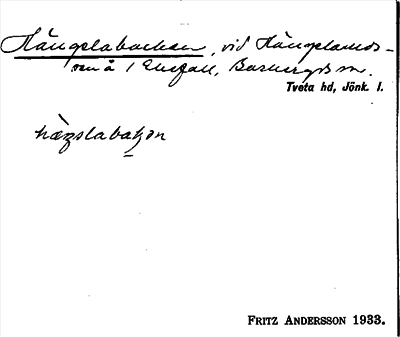 Hängslabacken, vid Hängslands-
små i Ekefall, Barkeryds sn.
Tveta hd, Jönk. l.
hàŋslabakən
FRITZ ANDERSSON 1933.